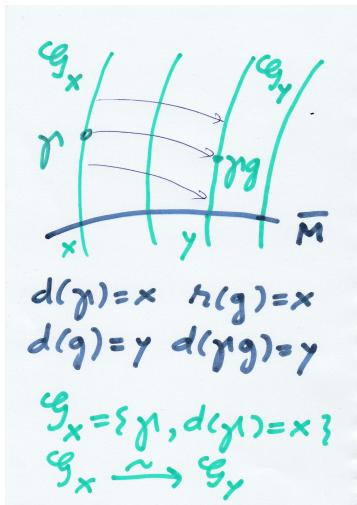 𝒢x 𝒢y
γ γg
x y M̅
d(γ)=x r(g)=x
d(g)=y d(γg)=y
𝒢x={γ, d(γ)=x}
𝒢x ⥲ 𝒢y